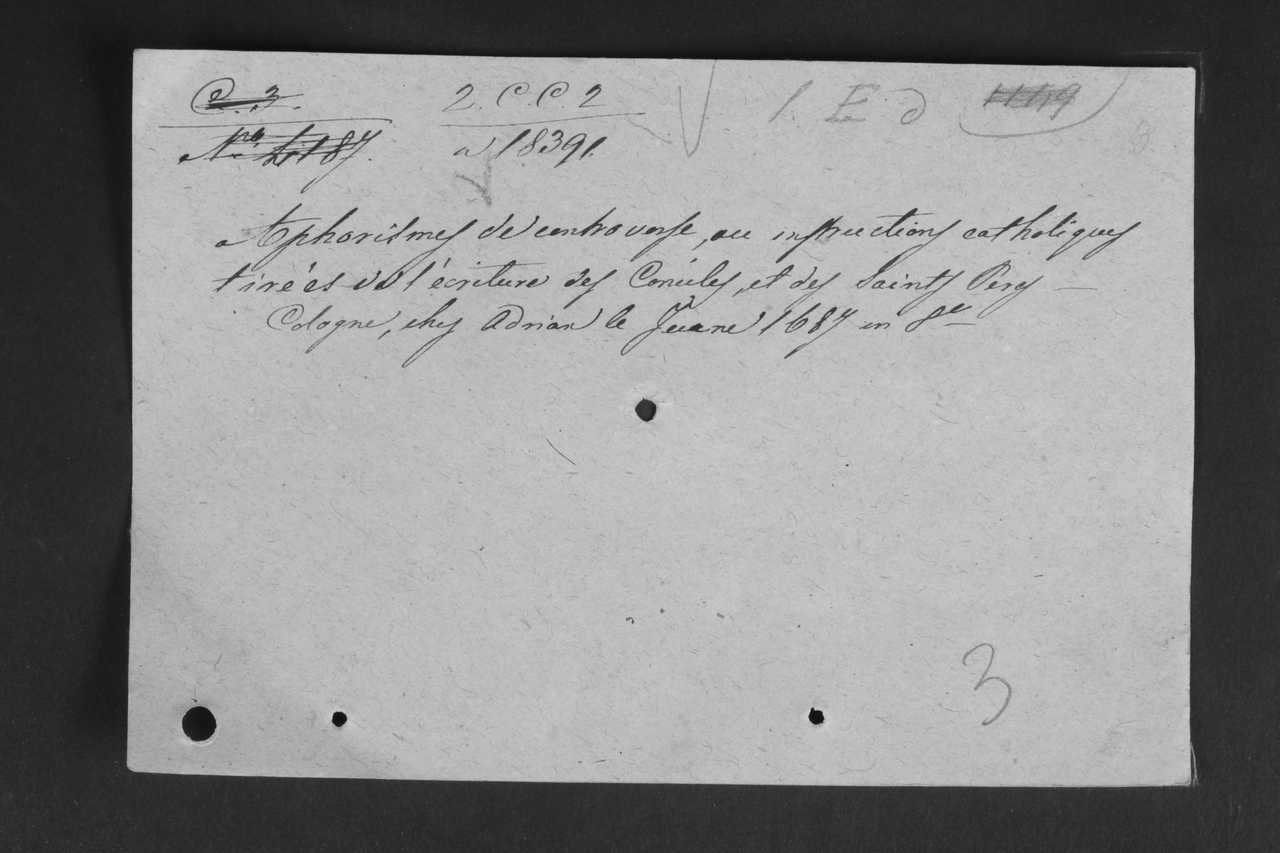 C. 3. 2. C. C. 2 1. E d 1149
Nro 187. 18391.
Aphorismes de controverse, ou instructions catholiques
tirées de l'écriture des Conciles, et des Saints Peres —
Cologne, chez Adrian le Jeune 1687 in 8º
3